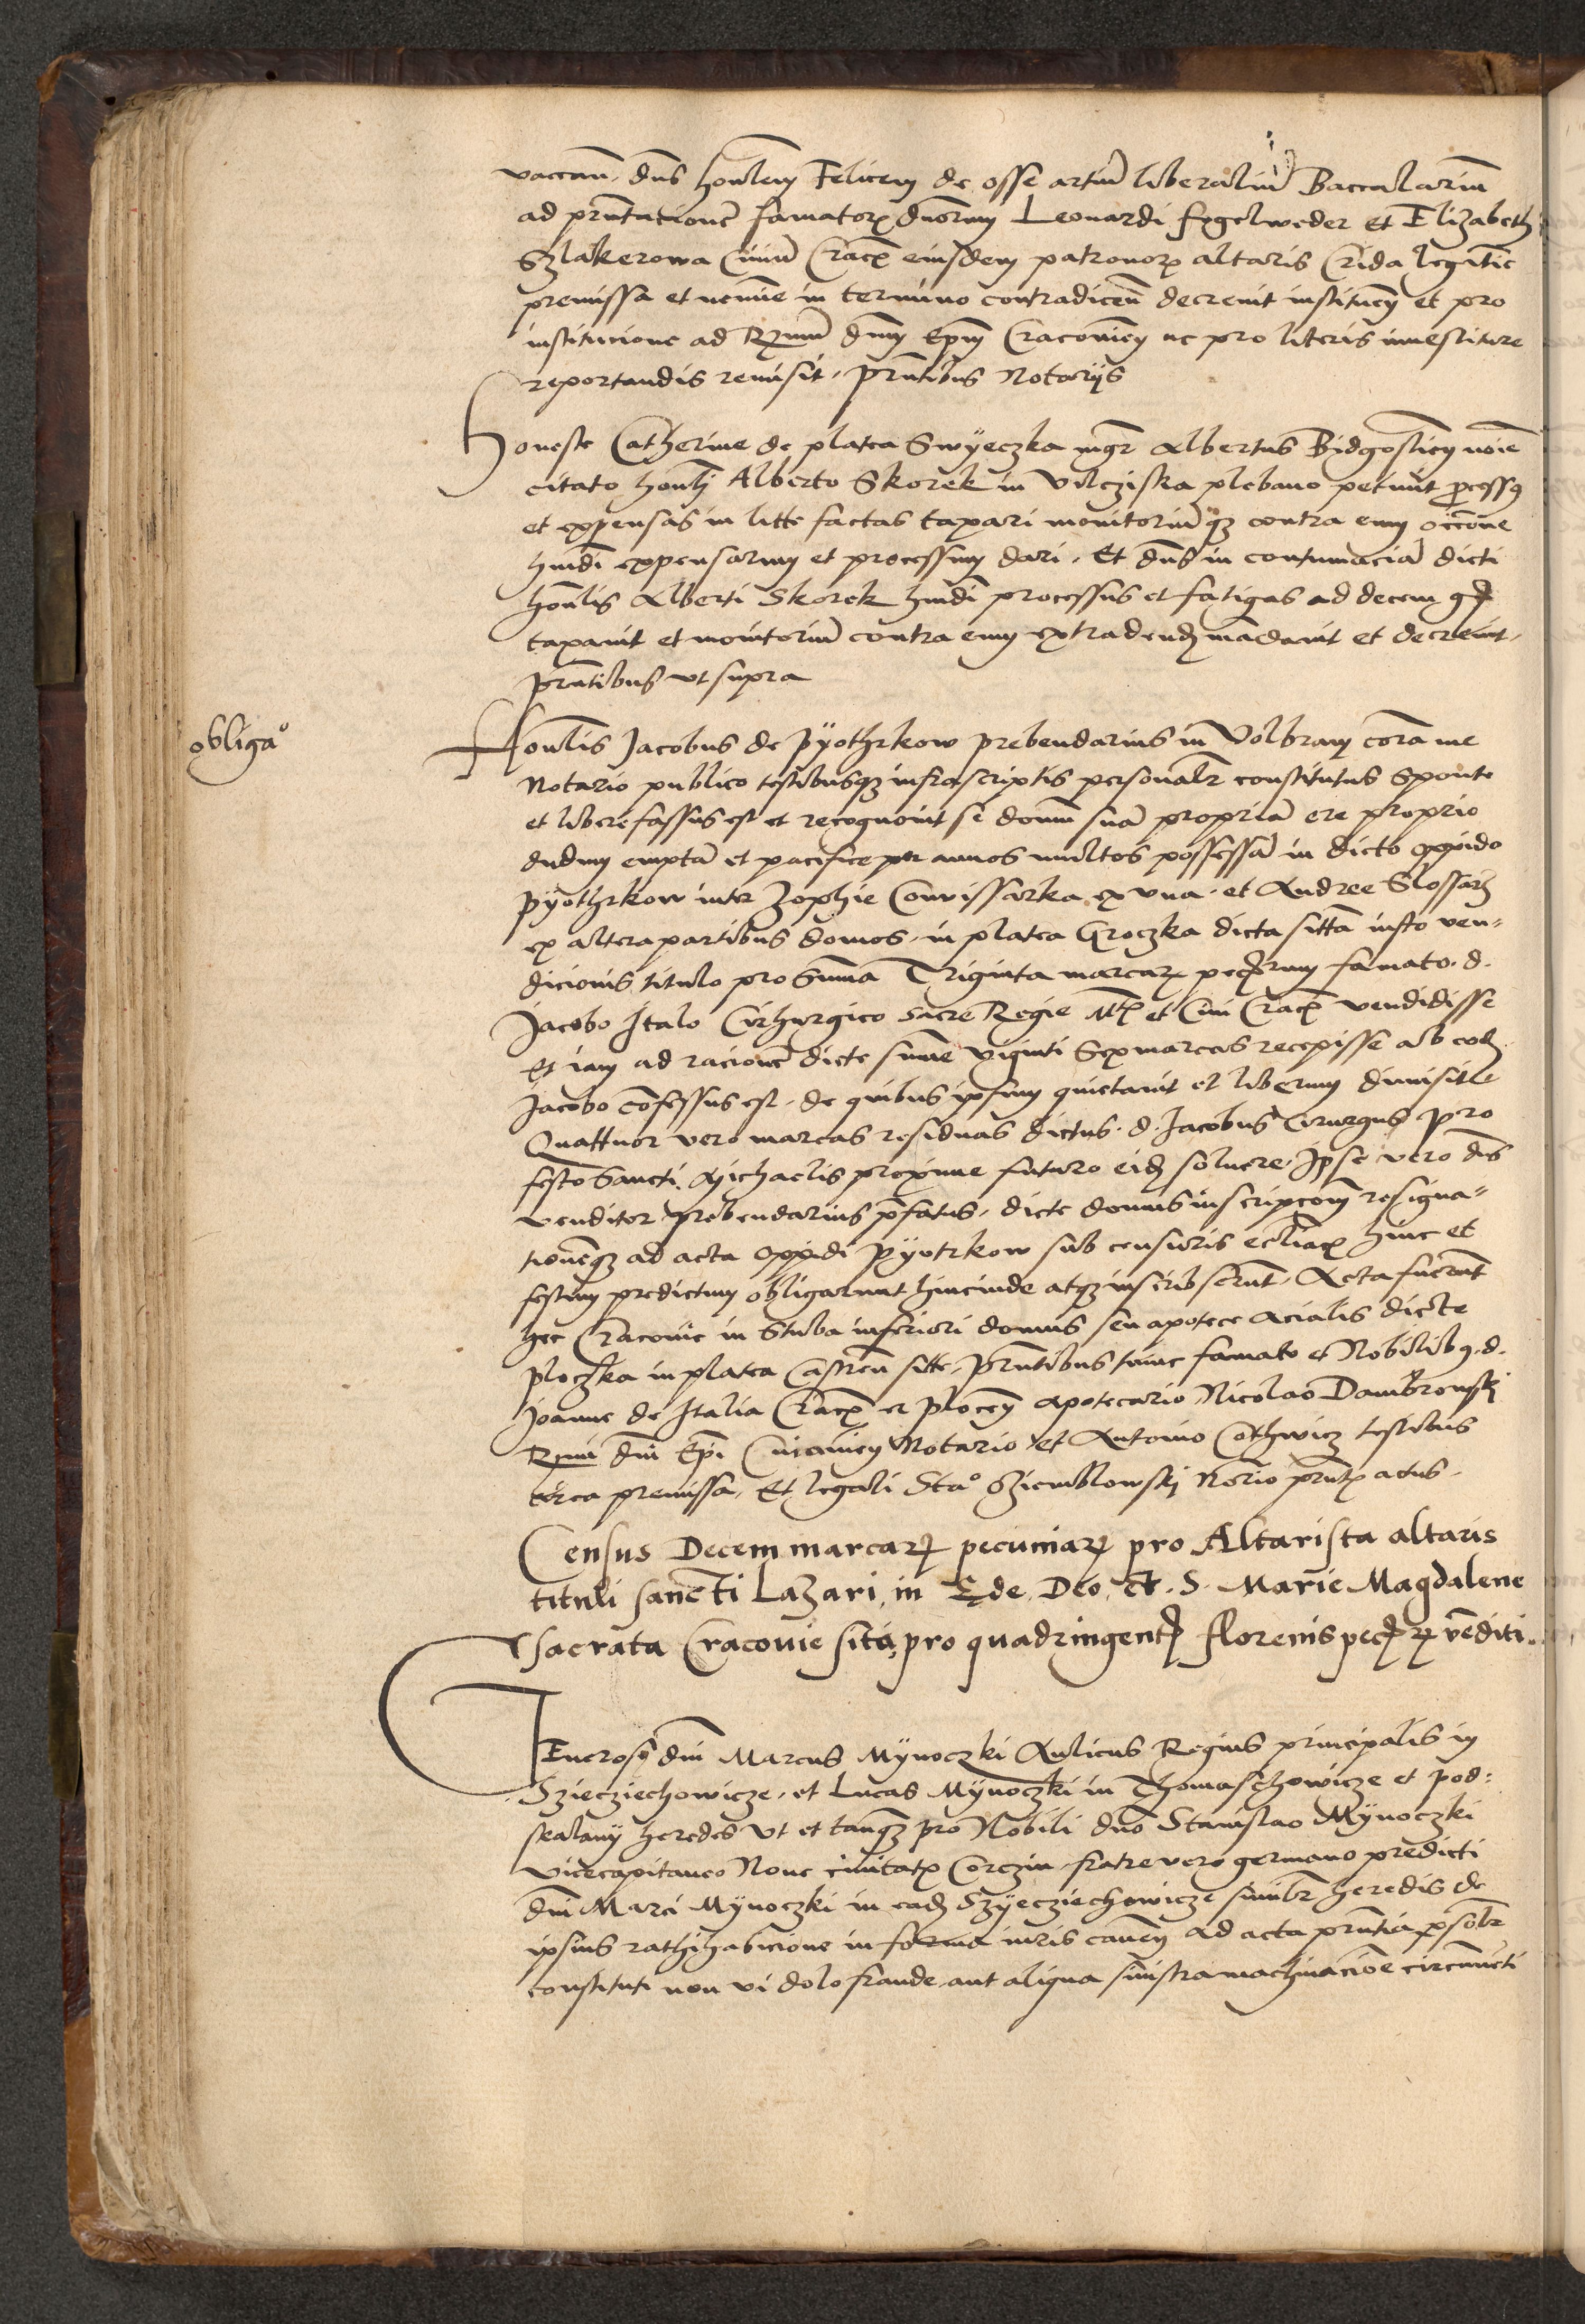 vaccan. dns honlem Felicem de osse artiũ liberaliũ Baccalariũ
ad prntationẽ famatorꝝ dnorum Leonardi fogelweder et Elizabeth
Szlakerowa Ciuiũ Cracꝫ eiusdem patronorꝝ altaris Crida legittĩe
premissa et nemĩe in termino contradicen̄ decreuit instituen̄ et pro
institucione ad Rꝫmũ dnm Epm̃ Cracouien̄ ac pro literis inuestiture
reportandis remisit. Prntibus Notarijs
Honeste Catherine de platea Swÿeczka mgr̃ Albertus Bidgosticen̄ noĩe
citato honli Alberto Skorek in Vilcziska plebano petiuit processꝰ
et expensas in litte factas taxari monitoriũqꝫ contra eum occõne
hmdi expensarum et processuum dari. Et dns in contumaciã dicti
honlis Alberti Skorek hmdi processus et fatigas ad decem gr
taxauit et monitoriũ contra eum extradendꝫ mãdauit et decreuit.
prntibus vt supra
obligaᵒ
Honlis Jacobus de Pÿothrkow prebendarius in Volbram corã me
Notario publico testibusqꝫ infrascriptis personalr̃ constitutus sponte
et libere fassus est et recognouit se domũ suã propriã ere proprio
dudum emptã et pacifice per annos multos possessã in dicto oppido
Pÿothrkow inter Zophie Conwissarka ex vna. et Andree Slossarz
ex altera partibus domos. in platea Groczka dicta sittã iusto ven⸗
dicionis titulo pro sũma Triginta marcarꝝ pecꝫrum famato. d.
Jacobo Italo Cirhurgico sacre Regie Mtꝫ et Ciui Cracꝫ vendidisse
Et iam ad racionẽ dicte sũme viginti sex marcas recepisse ab eodꝫ
Jacobo confessus est. de quibus ipsum quietauit et liberum dimisit
Quattuor vero marcas residuas dictus. d. Jacobus Cirurgus pro
festo Sancti Michaelis proxime futuro eidꝫ soluere. Ipse vero dns
venditor prebendarius p̃fatus. dicte domus inscripcionẽ resigna⸗
tionẽqꝫ ad acta oppidi Pÿotrkow sub censuris ecclĩacꝫ hinc et
festum predictum obligarunt hincinde atqꝫ inscribserũt. Acta fuerũt
hec Cracouie in stuba inferiori domus seu apotece acialis dicte
ploczka in platea Castren̄ sitte. Prntibus tunc famato et Nobilibꝰ. d.
Joanne de Italia Cracꝫ et plocen̄ apotecario Nicolao Dambrowskj
Rꝫmi dni Epi Cuiauien̄ Notario et Antonio Cothwicz testibus
circa premissa. Et legali Staᵒ Dziemblowskj Norio prntꝫ actus.
Census Decem marcarꝝ pecuniarꝝ pro Altarista altaris
tituli sancti Lazari, in Ede. Deo. et. S. Marie Magdalene
Sacrata Cracouie sitá, pro quadringentꝫ florenis pecꝫrꝝ vẽditi.
Generosꝰ dni Marcus Mÿnoczki Aulicus Regius principalis in
Szieciechowicze. et Lucas Mÿnoczki in Thomaschowicze et pod⸗
skalanÿ heredes vt et tanqꝫ pro Nobili dno Stanislao Mÿnoczki
vicecapitaneo Noue ciuitatꝫ Corczin fratre vero germano predicti
dni Marci Mÿnoczki in eadꝫ Szÿecziechowicze similr̃ heredis de
ipsius rathihabicione in forma iuris cauen̄ ad acta prntia psõlr
constituti non vi dolo fraude aut aliqua sinistra machinacione circũuẽti